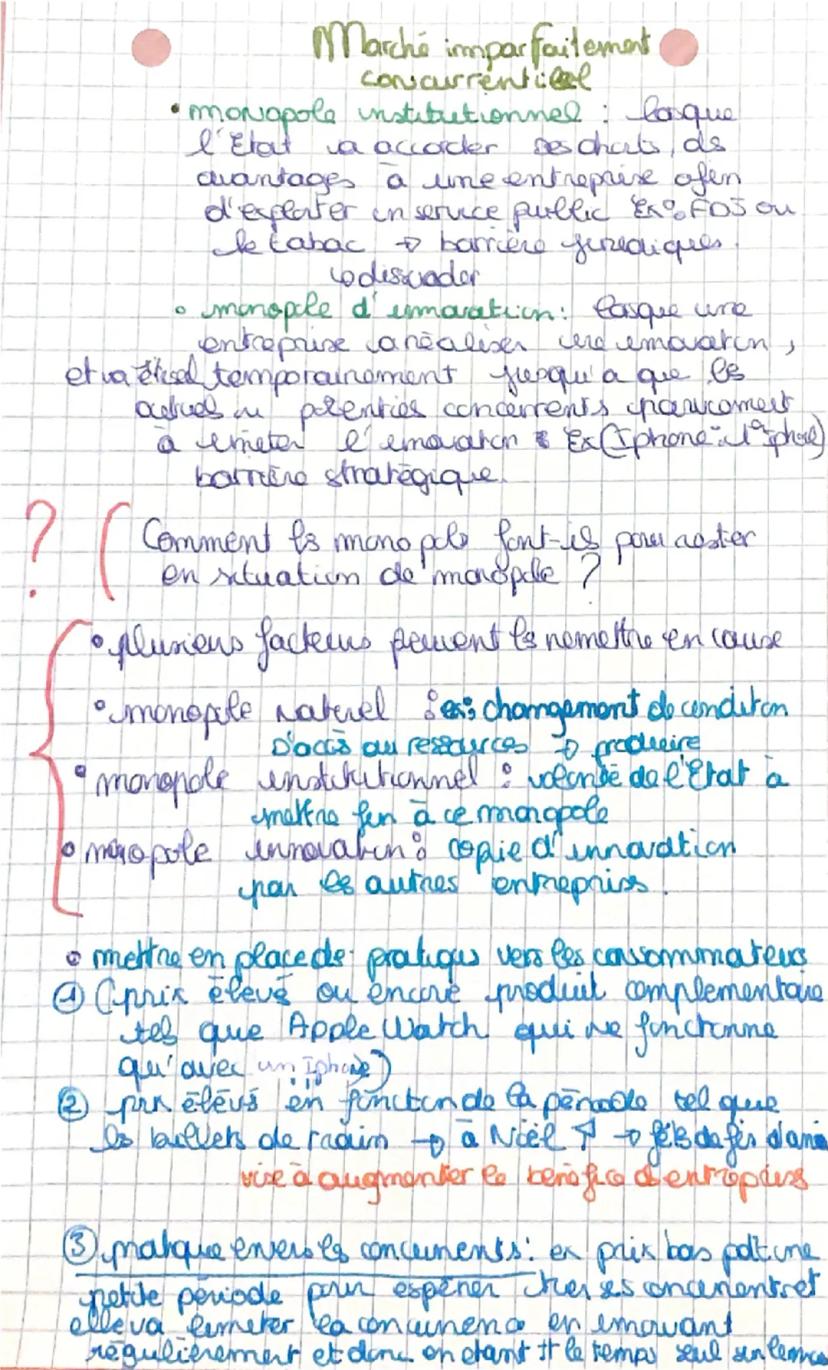 Marché imparfaitement
concurrentiel
• monopole institutionnel : losque
l'Etat va accorder des avantages à une entreprise afin
d'exploiter un service public Ex: FDJ ou
le tabac → barrière juridiques
↳ dissuader
• monopole d'innovation : losque une
entreprise va réaliser une innovation,
et va temporairement jusqu'a que les
potentiels concurrents
à l'innovation Ex (Iphone : 1er iphone)
barrière stratégique.
? ( Comment les monopole font-ils pour rester
en situation de monopole ?
• plusieurs facteurs peuvent les remettre en cause
• monopole naturel : ex: changement de condition
D'accès au ressources → produire
• monopole institutionnel : volonté de l'Etat à
mettre fin à ce monopole
• monopole innovation : copie d'innovation
par les autres entreprises.
• mettre en place de pratiques vers les consommateurs
① (prix élevé ou encore produit complementaire
tel que Apple Watch qui ne fonctionne
qu'avec un iphone)
② prix élévés en fonction de la période tel que
les billets de → à Noël ↑ →
vise à augmenter le bénéfice d'entreprises
③ pratique envers les concurrents : ex prix bas
petite période pour espérer ses concurrents et
elle va limiter la concurrence en innovant
régulièrement et donc en étant tt le temps seul sur le